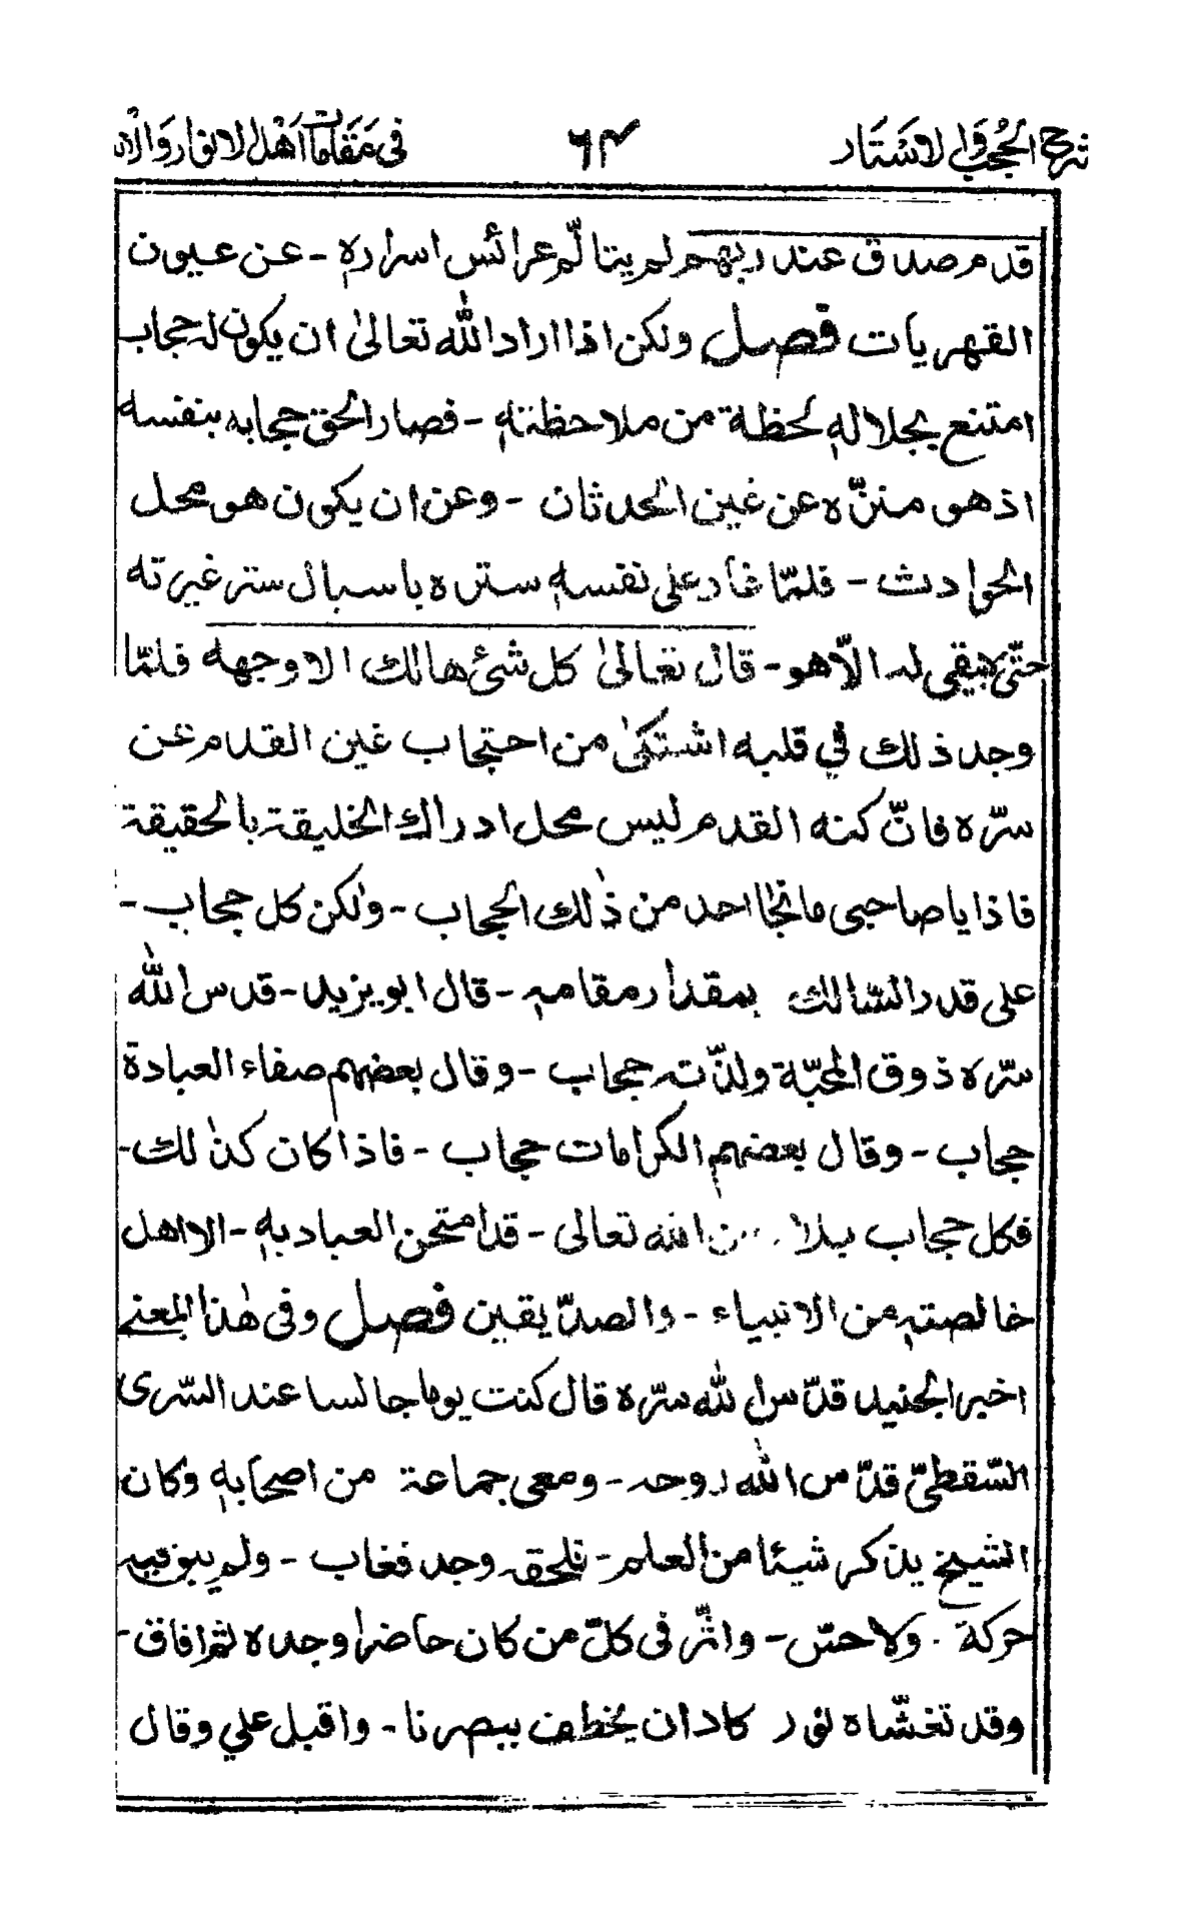 شرح الحجب والاستار ٦٤ في مقامات اهل الانوار والاس
قدم صدق عند ربهم لم يتألم عرائس اسراره - عن عيون
القهريات فصل ولكن اذا اراد الله تعالىٰ ان يكون له حجاب
امتنع بجلاله لحظة من ملاحظته - فصار الحق حجابه بنفسه
اذ هو منزّه عن غين الحدثان - وعن ان يكون هو محل
الحوادث - فلمّا غار على نفسه ستره باسبال ستر غيرته
حتّى يبقى له الّا هو - قال تعالىٰ كل شئ هالك الا وجهه فلمّا
وجد ذلك في قلبه اشتكىٰ من احتجاب غين القدم عن
سرّه فانّ كنه القدم ليس محل ادراك الخليقة بالحقيقة
فاذا يا صاحبى ما نجا احد من ذٰلك الحجاب - ولكن كل حجاب -
على قدر السّالك بمقدار مقامه - قال ابو يزيد - قدس الله
سّره ذوق المحبّة ولذّته حجاب - وقال بعضهم صفاء العبادة
حجاب - وقال بعضهم الكرامات حجاب - فاذا كان كذٰلك -
فكل حجاب بلا من الله تعالى - قد امتحن العباد به - الا اهل
خالصته من الانبياء - والصدّيقين فصل وفى هٰذا المعنے
اخبر الجنيد قدّس الله سرّه قال كنت يوما جالسا عند السّرى
السّقطىّ قدّس الله روحه - ومعى جماعة من اصحابه وكان
الشيخ يذكر شيئا من العلم - فلحقه وجد فغاب - ولم يبق فيه
حركة ولا حسّ - واثّر فى كلّ من كان حاضرا وجده ثم افاق -
وقد تغشّاه نور كاد ان يخطف ببصرنا - واقبل علي وقال